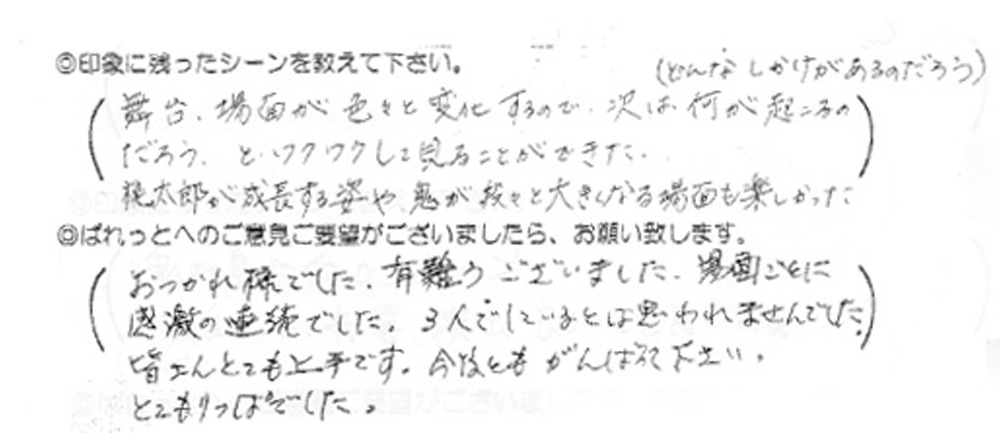 ◎印象に残ったシーンを教えて下さい。
(どんなしかけがあるのだろう)
舞台、場面が色々と変化するので、次は何が起こるの
だろう、と、ワクワクして見ることができた。
桃太郎が成長する姿や鬼が段々と大きくなる場面も楽しかった
◎ぱれっとへのご意見ご要望がございましたら、お願い致します。
おつかれ様でした。有難うございました。場面ごとに
感激の連続でした。3人でしているとは思われませんでした。
皆さんとても上手です。今後ともがんばって下さい。
とてもりっぱでした。